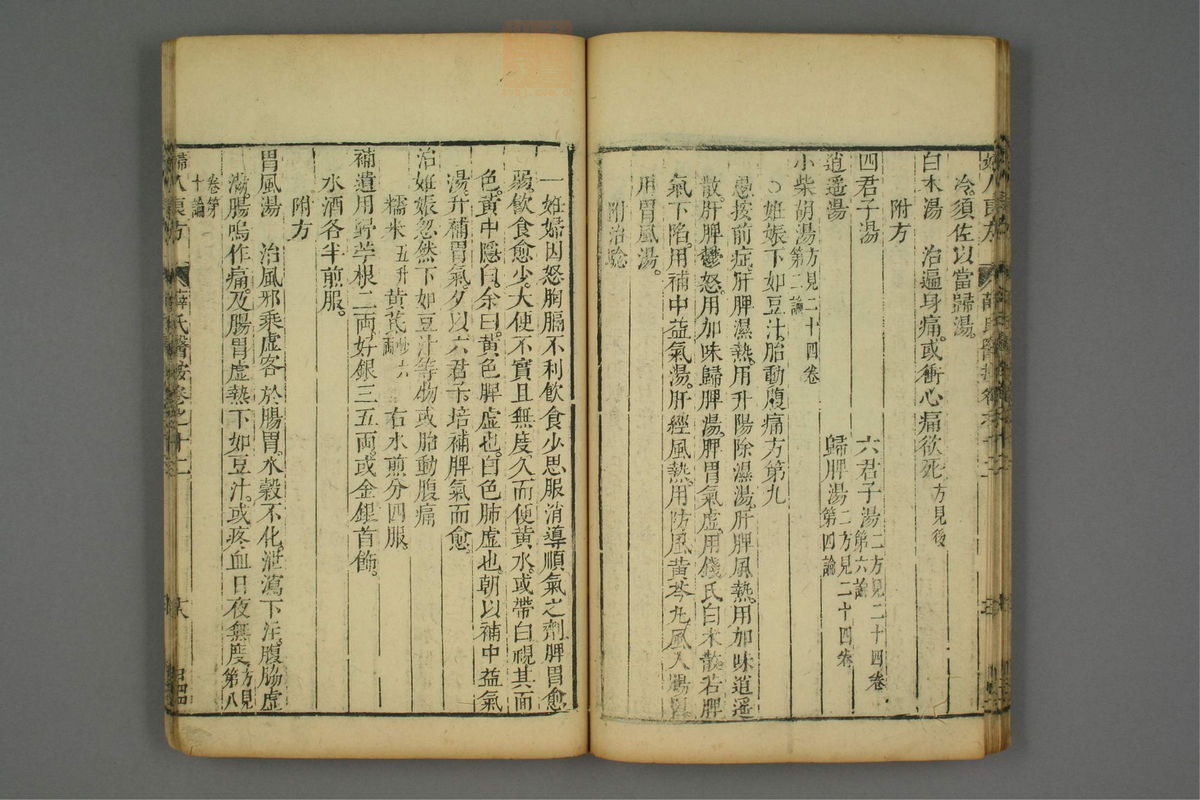 冷須佐以當歸湯。
白朮湯　治遍身痛。或衝心痛欲死方見後
附方
四君子湯　六君子湯二方見二十四卷第六論
逍遥湯　歸脾湯二方見二十四卷第四論
小柴胡湯方見二十四卷第二論
○妊娠下如豆汁。胎動腹痛方第九
愚按前症。肝脾濕熱。用升陽除濕湯。肝脾風熱。用加味逍遥
散。肝脾鬱怒。用加味歸脾湯。脾胃氣虛。用錢氏白朮散。若脾
氣下陷。用補中益氣湯。肝經風熱。用防風黄芩丸。風入腸胃
用胃風湯。
附治驗
一妊婦因怒胸膈不利飲食少思服消導順氣之劑脾胃愈
弱。飲食愈少。大便不實且無度久而便黄水。或帶白視其面
色。黄中隱白。余曰。黄色脾虛也。白色肺虛也。朝以補中益氣
湯。升補胃氣。夕以六君子培補脾氣而愈
治妊娠忽然下如豆汁等物或胎動腹痛
糯米五升　黄芪六兩　右水煎分四服。
補遺用野苧根二兩。好銀三五兩。或金銀首飾。
水酒各半煎服。
附方
胃風湯　治風邪乘虛客於腸胃。水穀不化。泄瀉下注。腹脇虛
滿。腸鳴作痛。及腸胃虛熱下如豆汁。或疼血日夜無度方見第八
卷第十論
婦人良方　薛氏醫按卷之十二　十六